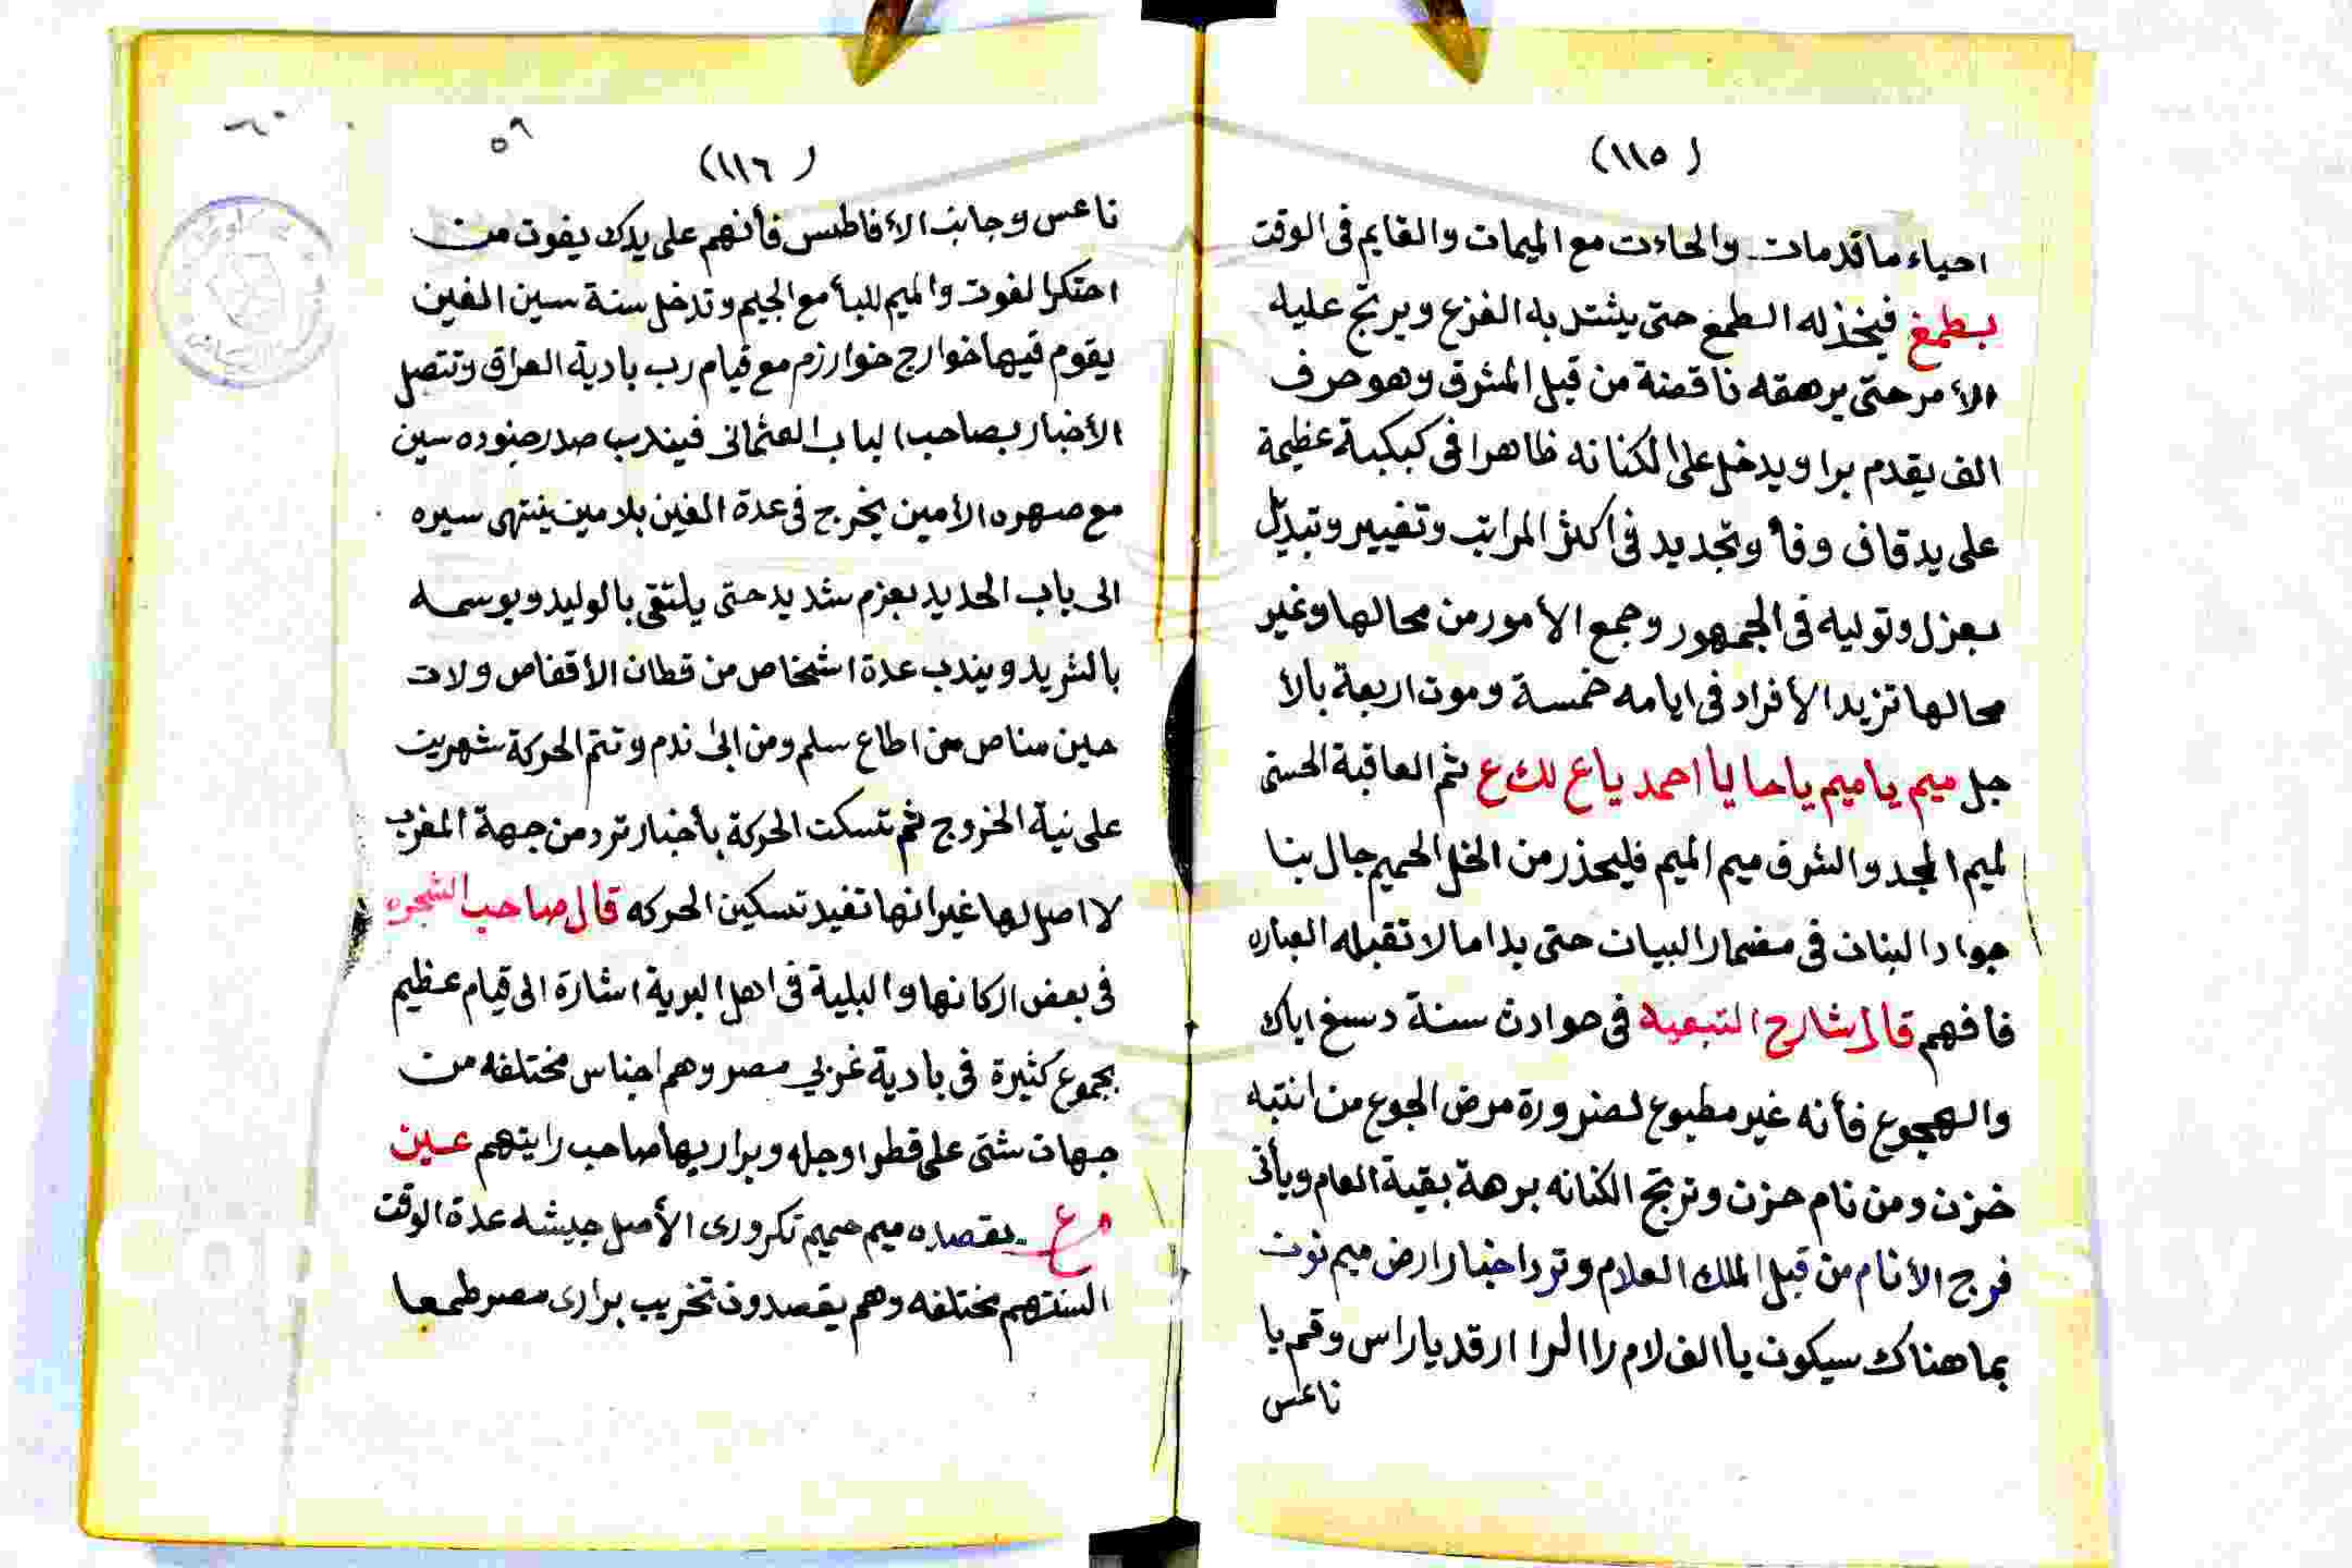 (١١٥)
احياء ما قدمات والحاءت مع الميمات والقايم فى الوقت
بطمغ فيخذله الطمغ حتى يشتد به الفزع ويرتج عليه
الأمر حتى يرهقه ناقصة من قبل المشرق وهو حرف
الف يقدم برا ويدخل على الكنانه ظاهرا فى كبكبة عظيمة
على يد قاف وفأ وتجديد فى اكثر المراتب وتغيير وتبديل
بعزل وتوليه فى الجمهور وجمع الأمور من محالها وغير
محالها تزيد الأفراد فى ايامه خمسة وموت اربعة بالأ
جل ميم يا ميم يا حا يا احمد ياع لك ع ثم العاقبة الحسنى
لميم المجد والشرف ميم الميم فليحذر من الخل الحميم جال بنا
جواد البنان فى مضمار البيان حتى بدا مالا تقبله العباره
فافهم قال شارح التبعيه فى حوادث سنة دسغ اياك
والهجوع فأنه غير مطبوع لضرورة مرض الجوع من انتبه
خزن ومن نام حزن وترتج الكنانه برهة بقية العام ويأتى
فرج الأنام من قبل الملك العلام وترد اخبار ارض ميم نون
بما هناك سيكون يا الف لام را الرا ارقد يا راس وقم يا
ناعس
٥٩
(١١٦)
ناعس وجانب الأفاطس فأنهم على يدك يفوت من
احتكر الفوت والميم للبأ مع الجيم وتدخل سنة سين الغين
يقوم فيها خوارج خوارزم مع قيام رب بادية العراق وتتصل
الأخبار بصاحب الباب العثمانى فيندب صدر جنوده سين
مع صهره الأمين يخرج فى عدة الغين بلامين ينتهى سيره
الى باب الحديد بعزم شديد حتى يلتقى بالوليد ويوسمه
بالشريد ويندب عدة اشخاص من قطان الأقفاص ولات
حين مناص من اطاع سلم ومن ابى ندم وتتم الحركة شهرين
على نية الخروج ثم تسكت الحركة بأخبار ترد من جهة المغرب
لا اصل لها غير انها تفيد تسكين الحركه قال صاحب الشجره
فى بعض اركانها والبلية فى اهل البرية اشارة الى قيام عظيم
بجموع كثيرة فى بادية غربي مصر وهم اجناس مختلفه من
جهات شتى على قطر اوجله وبراريها صاحب رايتهم عين
مع يقصده ميم صميم تكرورى الأصل جيشه عدة الوقت
السنتهم مختلفه وهم يقصدون تخريب برارى مصر طمعا